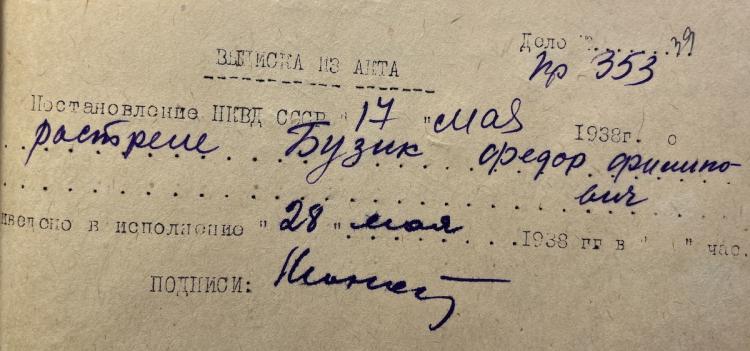 Дело №.......39
Пр 353
ВЫПИСКА ИЗ АКТА
Постановление НКВД СССР "17" мая 1938г. о
растреле Бузик Федор Филипо-
вич
иведено в исполнение "28" мая 1938 гг в " " час.
ПОДПИСИ: